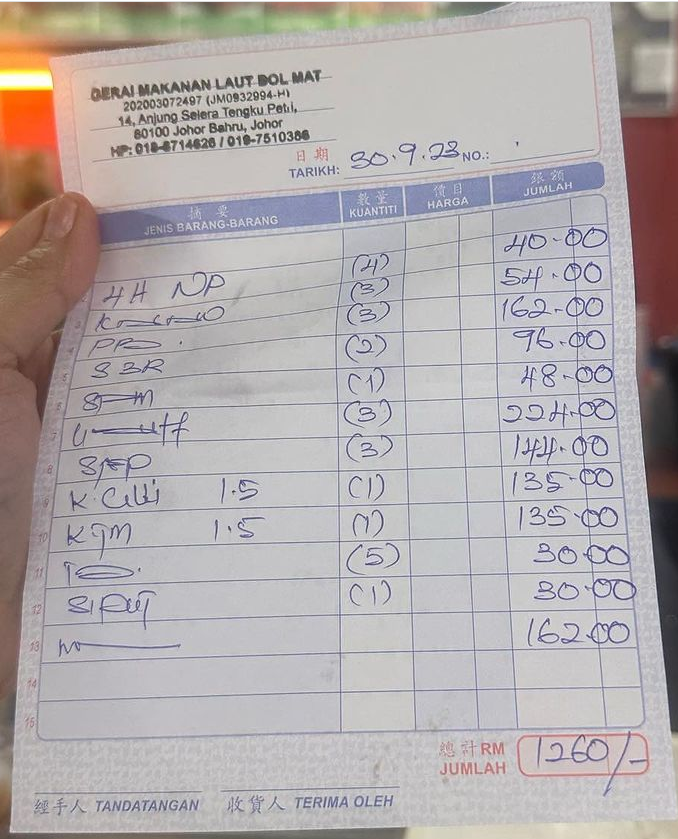 GERAI MAKANAN LAUT BOL MAT
202003072497 (JM0932994-H)
14, Anjung Selera Tengku Petri,
80100 Johor Bahru, Johor
HP: 018-8714626 / 019-7510386
日期
TARIKH: 30.9.23 NO.:
摘要 數量 價目 銀額
JENIS BARANG-BARANG KUANTITI HARGA JUMLAH
40.00
2 4H NP (4) 54.00
3 (3) 162.00
4 (3) 96.00
5 SBR (2) 48.00
6 (1) 224.00
7 (3) 144.00
8 (3) 135.00
9 K. Celli 1.5 (1) 135.00
10 1.5 (1) 30.00
11 (5) 30.00
12 SIPUT (1) 162.00
13
14
15
總計 RM
JUMLAH 1260/-
經手人 TANDATANGAN 收貨人 TERIMA OLEH